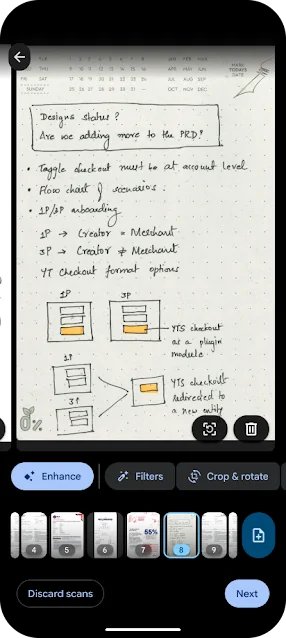 MARK
TODAY'S
DATE
SUNDAY
JAN FEB MAR
APR MAY JUN
JUL AUG SEP
OCT NOV DEC
Designs status?
Are we adding more to the PRD?
• Toggle checkout must be at account level
• Flow chart of scenarios.
• 1P/3P onboarding
1P → Creator = Merchant
3P → Creator ≠ Merchant
YT Checkout format options
1P
3P
YTS checkout
as a plugin
module
1P
3P
YTS checkout
redirected to
a new entity
Enhance
Filters
Crop & rotate
4
5
6
7
55%
8
9
Discard scans
Next